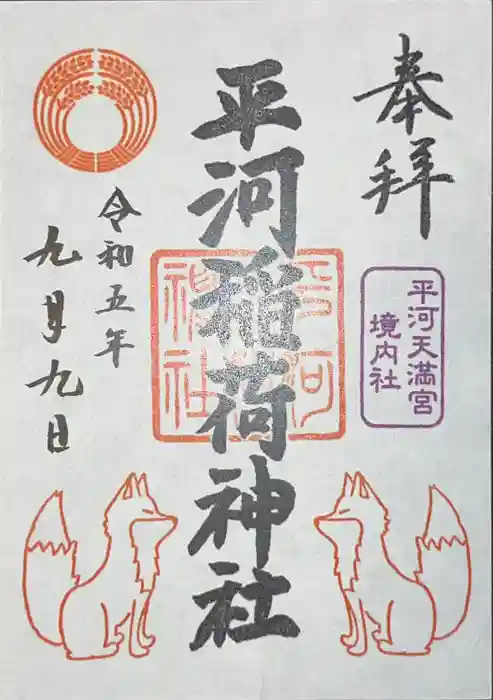 奉拝
平河天満宮
境内社
平河稲荷神社
平河
稲荷
神社
令和五年
九月九日